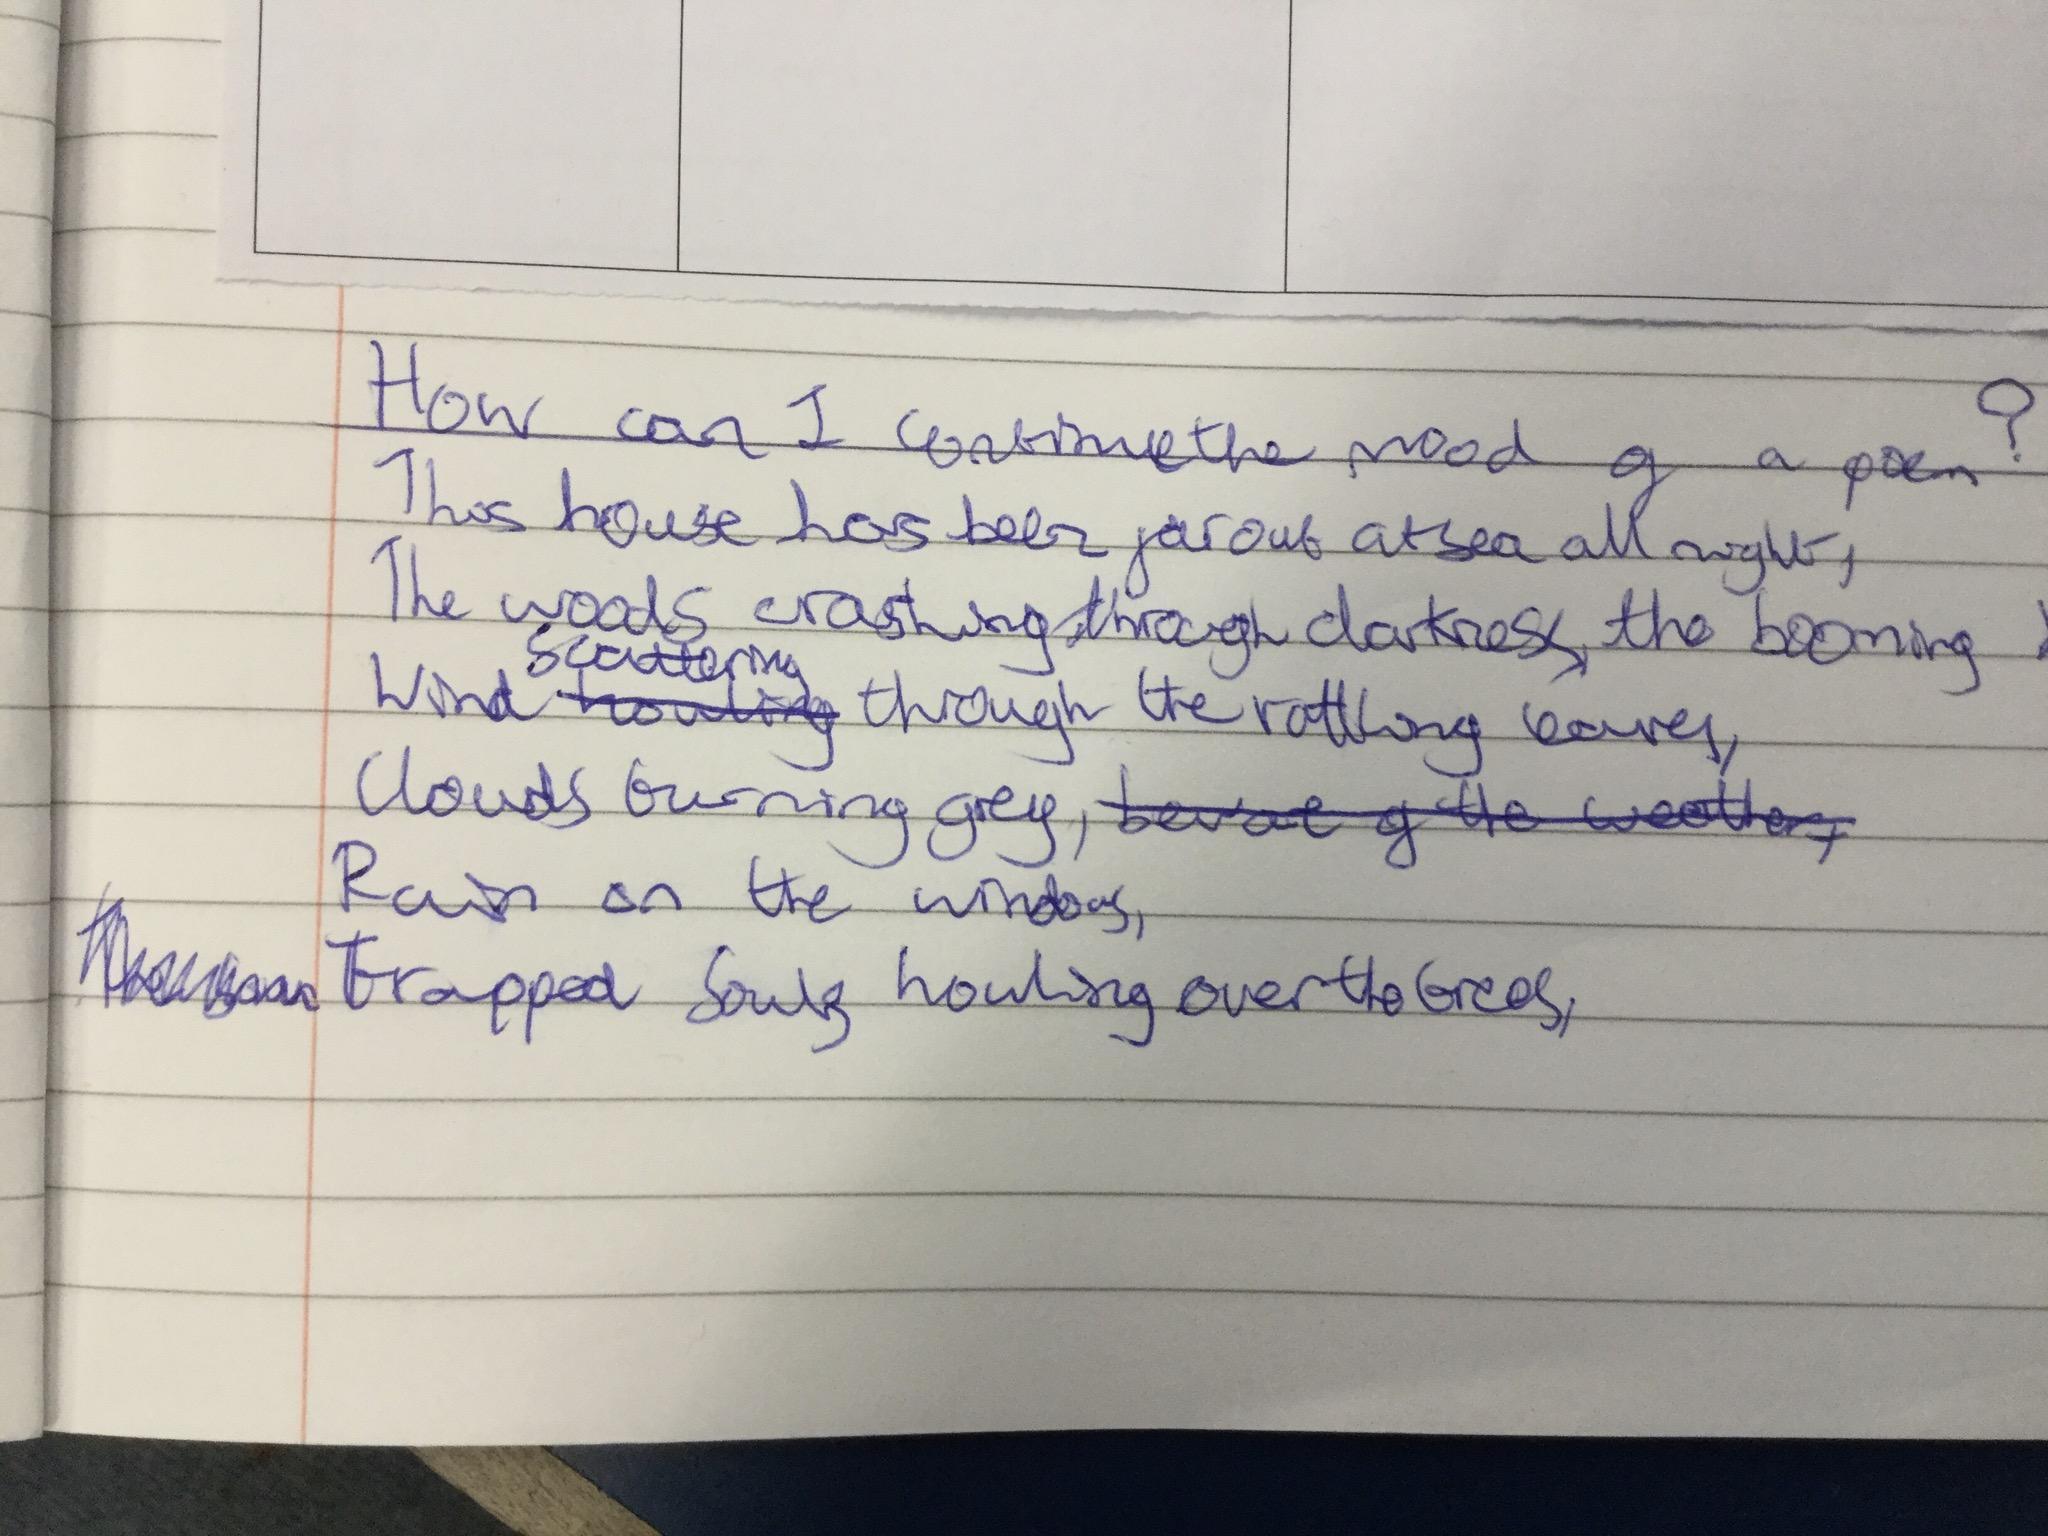 How can I continue the mood of a poem?
This house has been far out at sea all night,
The woods crashing through darkness, the booming
Wind scattering howling through the rattling leaves,
Clouds turning grey, beware of the weather,
Rain on the windows,
Trapped souls howling over the trees,